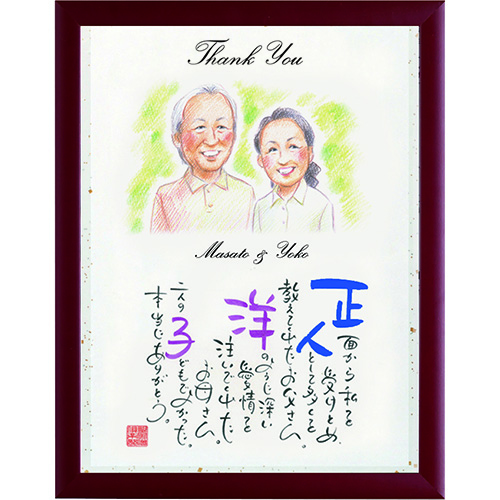 Thank You
Masato & Yoko
正面から私を受けとめ
人として多くを
教えてくれたお父さん。
洋のように深い
愛情を
注いでくれた
お母さん。
二人の子どもでよかった。
本当にありがとう。